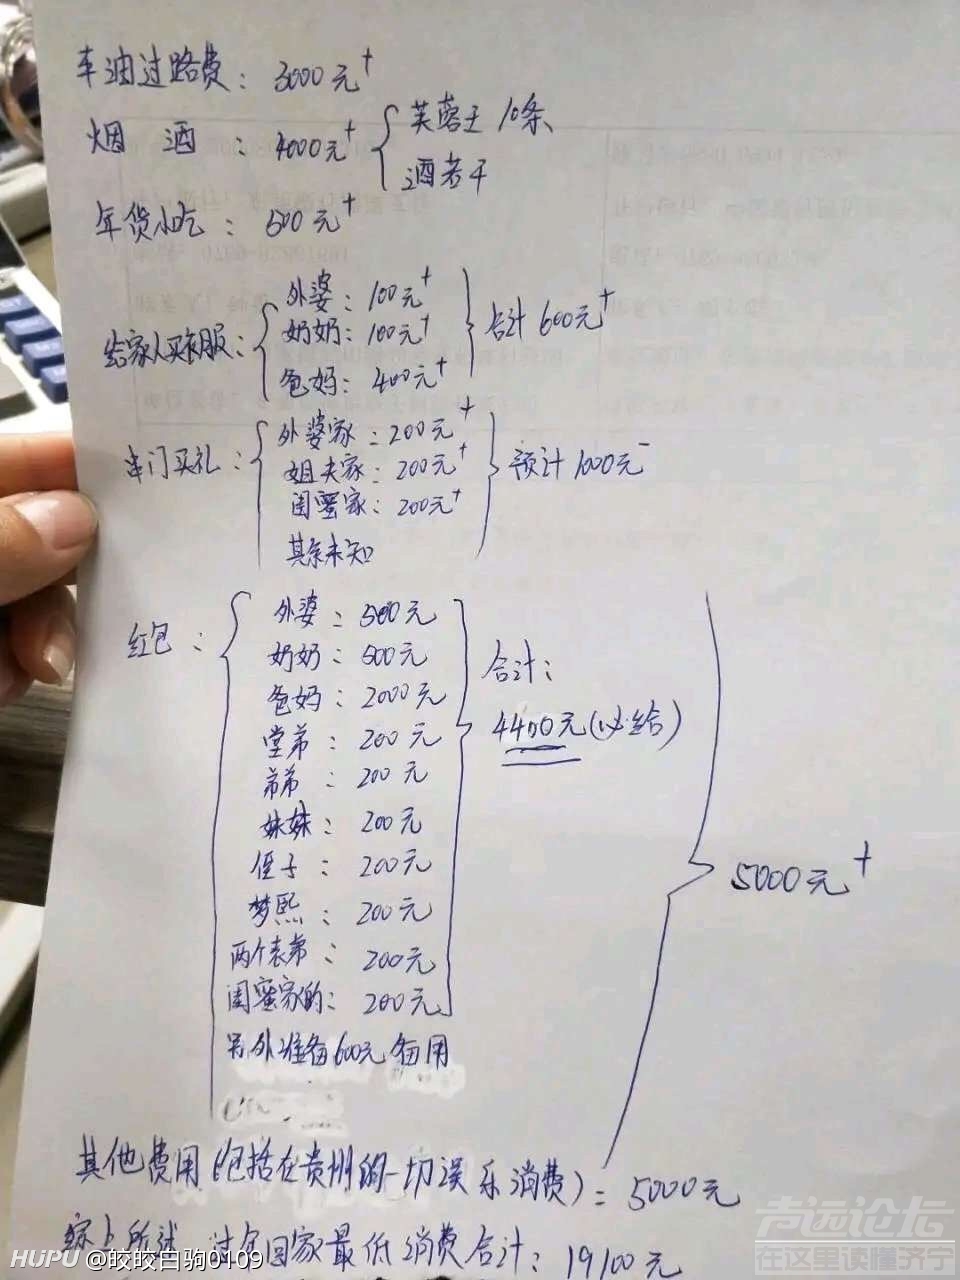 车油过路费：3000元+
烟 酒：4000元+ 芙蓉王 10条
酒若干
年货小吃：500元+
给家人买衣服： 外婆：100元+
奶奶：100元+ 合计600元+
爸妈：400元+
串门买礼： 外婆家：200元+
姐夫家：200元+ 预计1000元
闺蜜家：200元+
其余未知
红包： 外婆：500元
奶奶：500元 合计：
爸妈：2000元
堂弟：200元 4400元(必给)
弟弟：200元
妹妹：200元
侄子：200元 5000元+
梦熙：200元
两个表弟：200元
闺蜜家的：200元
另外准备600元备用
其他费用(包括在贵州的一切误乐消费)=5000元
综上所述 过年回家最低消费合计：19100元
HUPU @皎皎白驹0109
声远论坛
在这里读懂济宁